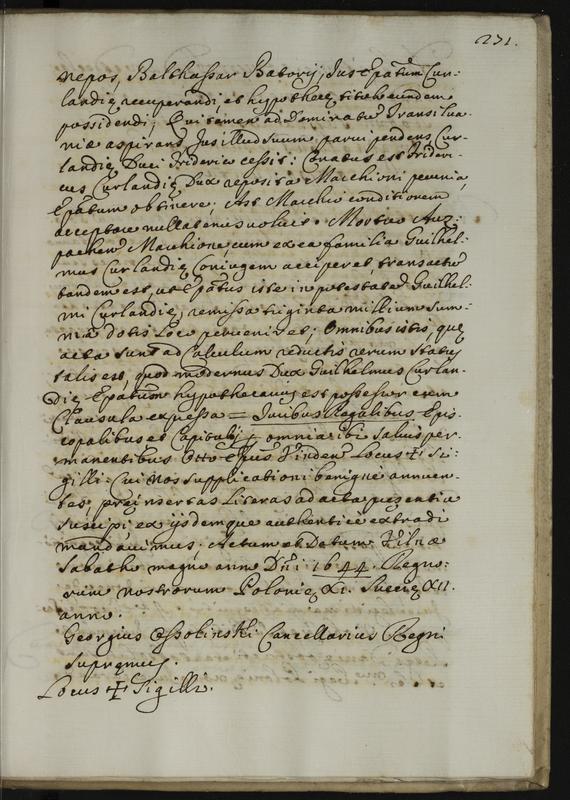 231.
nepos, Balthassar Batorij, Jus Epatum Cur:
landię recuperandi, et hypothecę titulo eundem
possidendi, Qui tamen ad Dominatu Transilua
niæ aspirans Jus illud suum parui pendens Cur:
landię Duci Friderico cessit: Conatus est Frideri:
cus Curlandię Dux reposita Marchioni pecunia,
Epatum obtinere; Ast Marchio conditionem
acceptare nullatenus voluit. Mortuo Anz:
pachen Marchione, cum ex ea familia Guilhel:
mus Curlandię Coniugem acciperet, transactu
tandem est, ut Epatus iste in potestatem Guilhel:
mi Curlandię, remissa triginta millium Sum:
ma dotis Loco perueniret; Omnibus istis, quę
acta sunt ad Calculum reductis rerum Status
talis est, quod modernus Dux Guilhelmus Curlan:
dię Epatum hypothecarius est possessor cum
Clausula expressa = Juribus Regalibus Epis:
copalibus et Capituli + omnia ibi saluis per:
manentibus Otto Epus Vinden Locus + Si:
gilli. Cui nos supplicationi benigne annuen:
tes, pręinsertas Literas ad acta pręsentia
suscipi, ex ijsdemque authentice extradi
mandauimus. Actum et Datum Vilnæ
Sabatho magno anno Dni 1644. Regno:
rum nostrorum Polonię XI. Suecię XII.
anno.
Georgius Ossolinski Cancellarius Regni
Supręmus.
Locus + Sigilli.